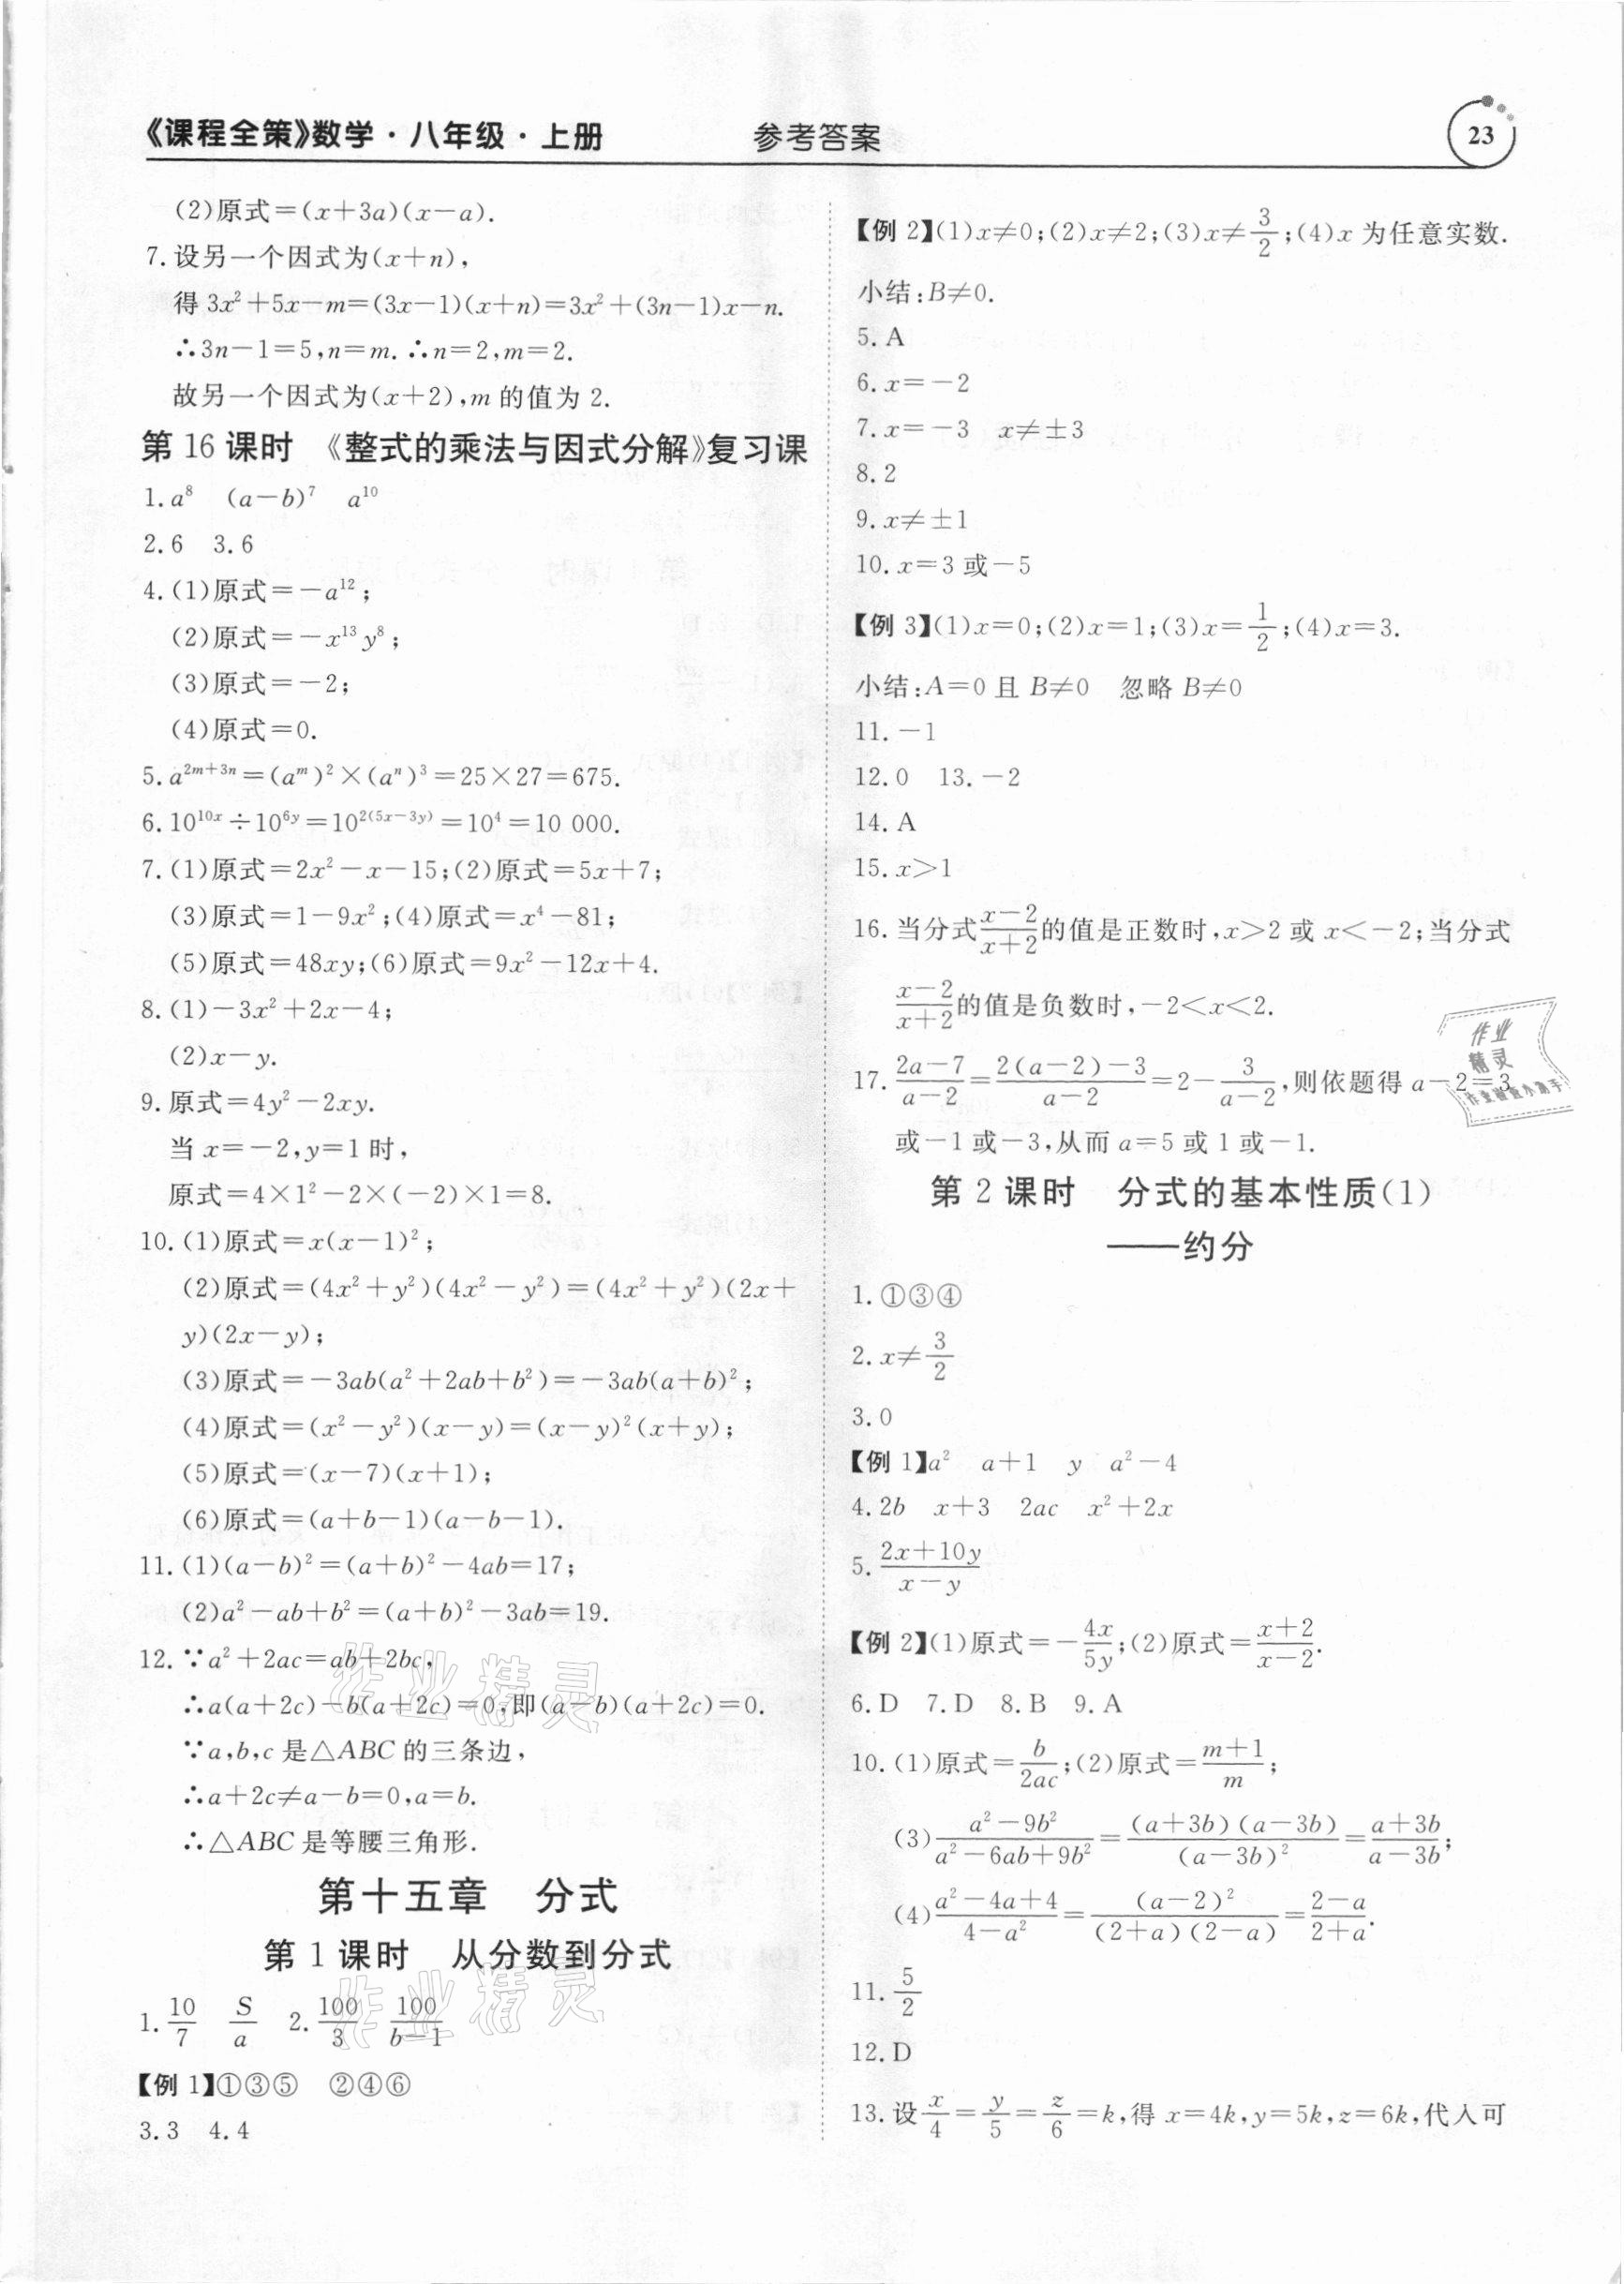 《课程全策》数学·八年级·上册
参考答案
23
(2)原式=(x+3a)(x-a).
7.设另一个因式为(x+n),
得 3x²+5x-m=(3x-1)(x+n)=3x²+(3n-1)x-n.
∴3n-1=5,n=m.∴n=2,m=2.
故另一个因式为(x+2),m 的值为 2.
第 16 课时 《整式的乘法与因式分解》复习课
1.a⁸ (a-b)⁷ a¹⁰
2.6 3.6
4.(1)原式=-a¹²;
(2)原式=-x¹³y⁸;
(3)原式=-2;
(4)原式=0.
5.a^{2m+3n}=(a^m)²×(a^n)³=25×27=675.
6.10^{10x}÷10^{6y}=10^{2(5x-3y)}=10⁴=10 000.
7.(1)原式=2x²-x-15;(2)原式=5x+7;
(3)原式=1-9x²;(4)原式=x⁴-81;
(5)原式=48xy;(6)原式=9x²-12x+4.
8.(1)-3x²+2x-4;
(2)x-y.
9.原式=4y²-2xy.
当 x=-2,y=1 时,
原式=4×1²-2×(-2)×1=8.
10.(1)原式=x(x-1)²;
(2)原式=(4x²+y²)(4x²-y²)=(4x²+y²)(2x+
y)(2x-y);
(3)原式=-3ab(a²+2ab+b²)=-3ab(a+b)²;
(4)原式=(x²-y²)(x-y)=(x-y)²(x+y);
(5)原式=(x-7)(x+1);
(6)原式=(a+b-1)(a-b-1).
11.(1)(a-b)²=(a+b)²-4ab=17;
(2)a²-ab+b²=(a+b)²-3ab=19.
12.∵a²+2ac=ab+2bc,
∴a(a+2c)-b(a+2c)=0,即(a-b)(a+2c)=0.
∵a,b,c 是△ABC 的三条边,
∴a+2c≠a-b=0,a=b.
∴△ABC 是等腰三角形.
第十五章 分式
第 1 课时 从分数到分式
1.10/7 S/a 2.100/3 100/(b-1)
【例 1】①③⑤ ②④⑥
3.3 4.4
【例 2】(1)x≠0;(2)x≠2;(3)x≠3/2;(4)x 为任意实数.
小结:B≠0.
5.A
6.x=-2
7.x=-3 x≠±3
8.2
9.x≠±1
10.x=3 或-5
【例 3】(1)x=0;(2)x=1;(3)x=1/2;(4)x=3.
小结:A=0 且 B≠0 忽略 B≠0
11.-1
12.0 13.-2
14.A
15.x>1
16.当分式(x-2)/(x+2)的值是正数时,x>2 或 x<-2;当分式
(x-2)/(x+2)的值是负数时,-2<x<2.
17.(2a-7)/(a-2)=(2(a-2)-3)/(a-2)=2-3/(a-2),则依题得 a-2=3
或-1 或-3,从而 a=5 或 1 或-1.
第 2 课时 分式的基本性质(1)
——约分
1.①③④
2.x≠3/2
3.0
【例 1】a² a+1 y a²-4
4.2b x+3 2ac x²+2x
5.(2x+10y)/(x-y)
【例 2】(1)原式=-4x/5y;(2)原式=(x+2)/(x-2).
6.D 7.D 8.B 9.A
10.(1)原式=b/2ac;(2)原式=(m+1)/m;
(3)(a²-9b²)/(a²-6ab+9b²)=(a+3b)(a-3b)/(a-3b)²=(a+3b)/(a-3b);
(4)(a²-4a+4)/(4-a²)=(a-2)²/(2+a)(2-a)=(2-a)/(2+a).
11.5/2
12.D
13.设x/4=y/5=z/6=k,得 x=4k,y=5k,z=6k,代入可
作业精灵
作业精灵
作业
精灵